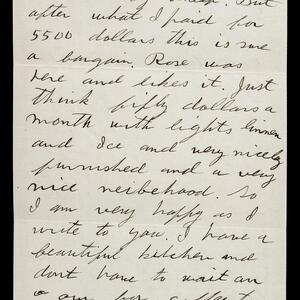 But
after what I paid for
5500 dollars this is sure
a bargain. Rose was
here and likes it. Just
think fifty dollars a
month with lights linnen
and Ice and very nicely
furnished and a very
nice neibehood. So
I am very happy as I
write to you. I have a
beautiful kitchen and
dont have to wait on